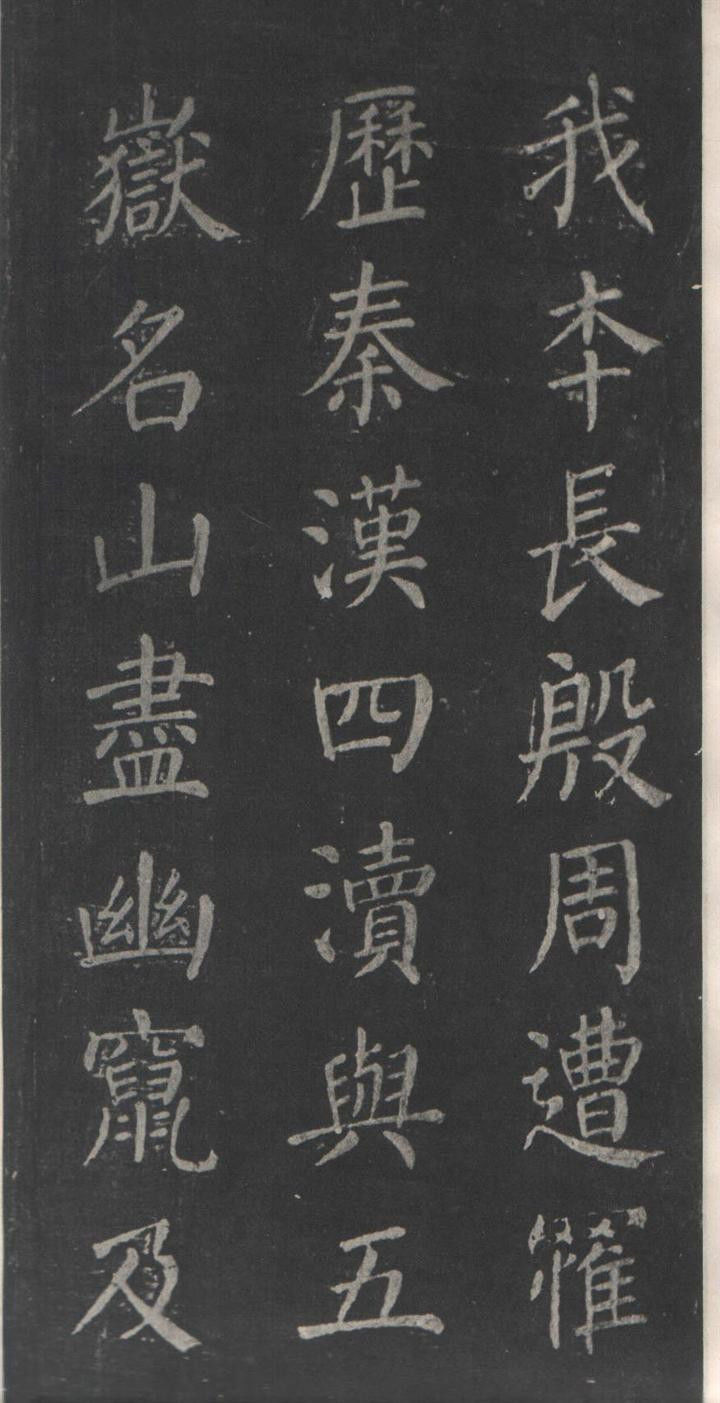 我本長殷周遭罹
歷秦漢四瀆與五
嶽名山盡幽竄及